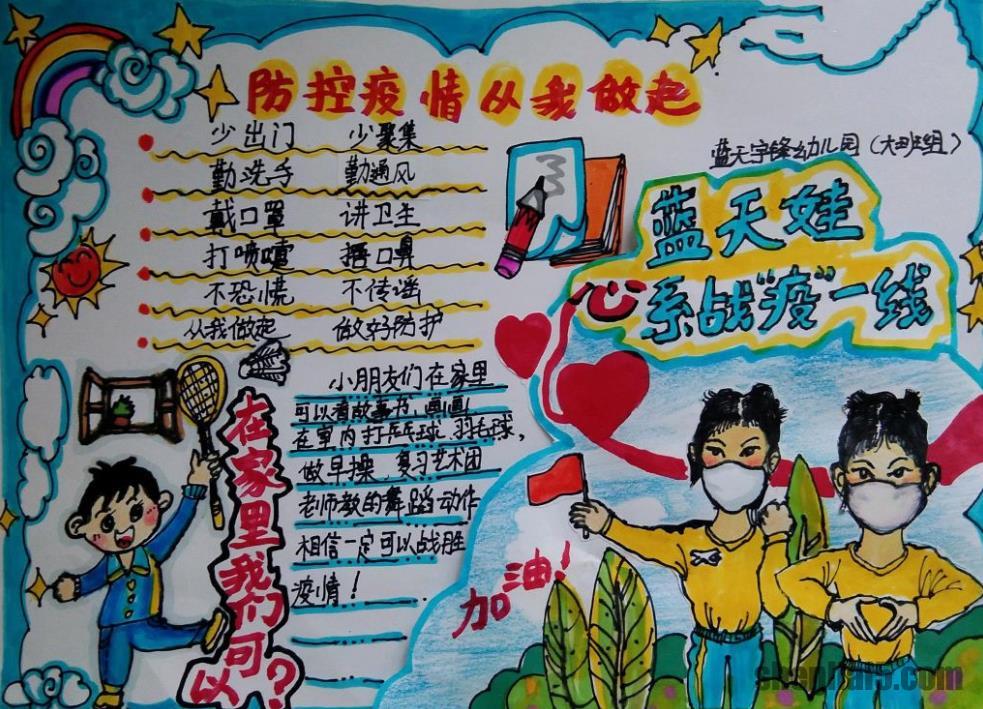 防控疫情从我做起
少出门 少聚集
勤洗手 勤通风
戴口罩 讲卫生
打喷嚏 捂口鼻
不恐慌 不传谣
从我做起 做好防护
蓝天宇锋幼儿园(大班组)
蓝天娃
心系战"疫"一线
在家里我们可以?
小朋友们在家里
可以看故事书,画画
在室内打乒乓球、羽毛球,
做早操,复习艺术团
老师教的舞蹈动作
相信一定可以战胜
疫情!
加油!